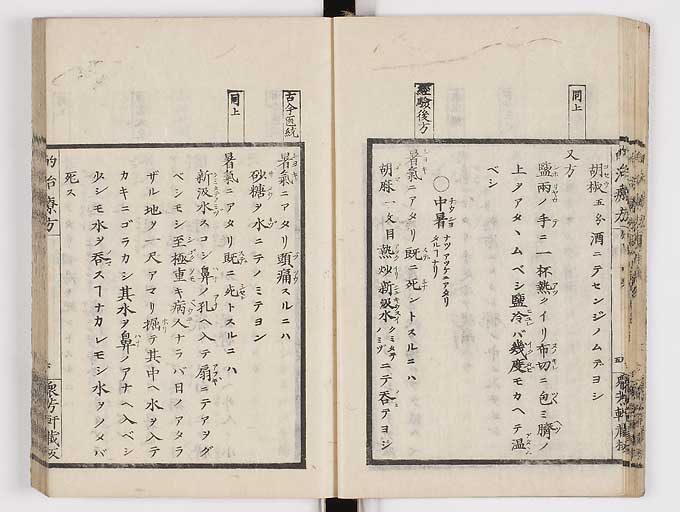 同上
胡椒五分酒ニテセンジノムテヨシ
又方
鹽兩ノ手ニ一杯熱クイリ布切ニ包ミ臍ノ
上クアタヽムベシ鹽冷バ幾度モカヘテ温
ベシ
經驗後方
〇中暑
ナツノアツケニアタリ
タルナリ
暑氣ニアタリ既ニ死ントスルニハ
胡麻一文目熱炒新汲水ニテ呑テヨシ
古今医統
暑氣ニアタリ頭痛スルニハ
砂糖ヲ水ニテノミテヨシ
同上
暑氣ニアタリ既ニ死トスルニハ
新汲水スコシ鼻ノ孔ヘ入テ扇ニテアヲグ
ベシモシ至極重キ病人ナラバ日ノアタラ
ザル地ヲ一尺アマリ掘テ其中ヘ水ヲ入テ
カキニゴラカシ其水ヲ鼻ノアナヘ入ベシ
少シモ水ヲ呑スヿナカレモシ水ヲノメバ
死ス
的治療方